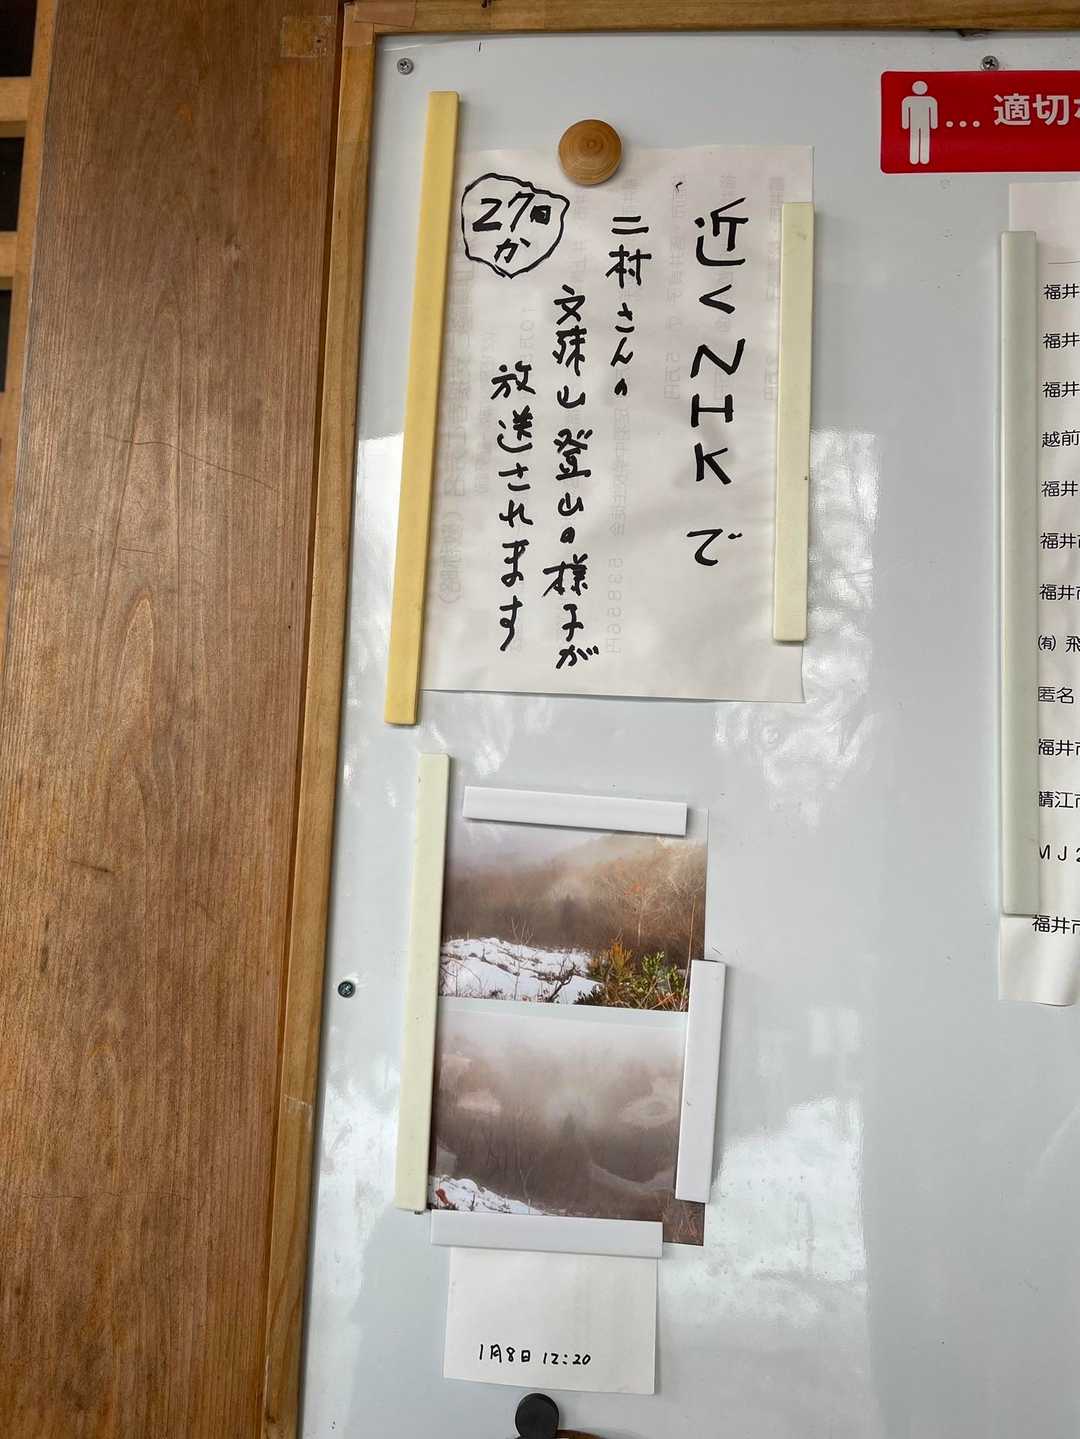 近くNHKで
二村さんの
文殊山登山の様子が
放送されます
27日
か
… 適切な
福井
福井
福井
越前
福井
福井市
福井市
㈲ 飛
匿名
福井市
鯖江市
MJ2
福井市
1月8日 12:20